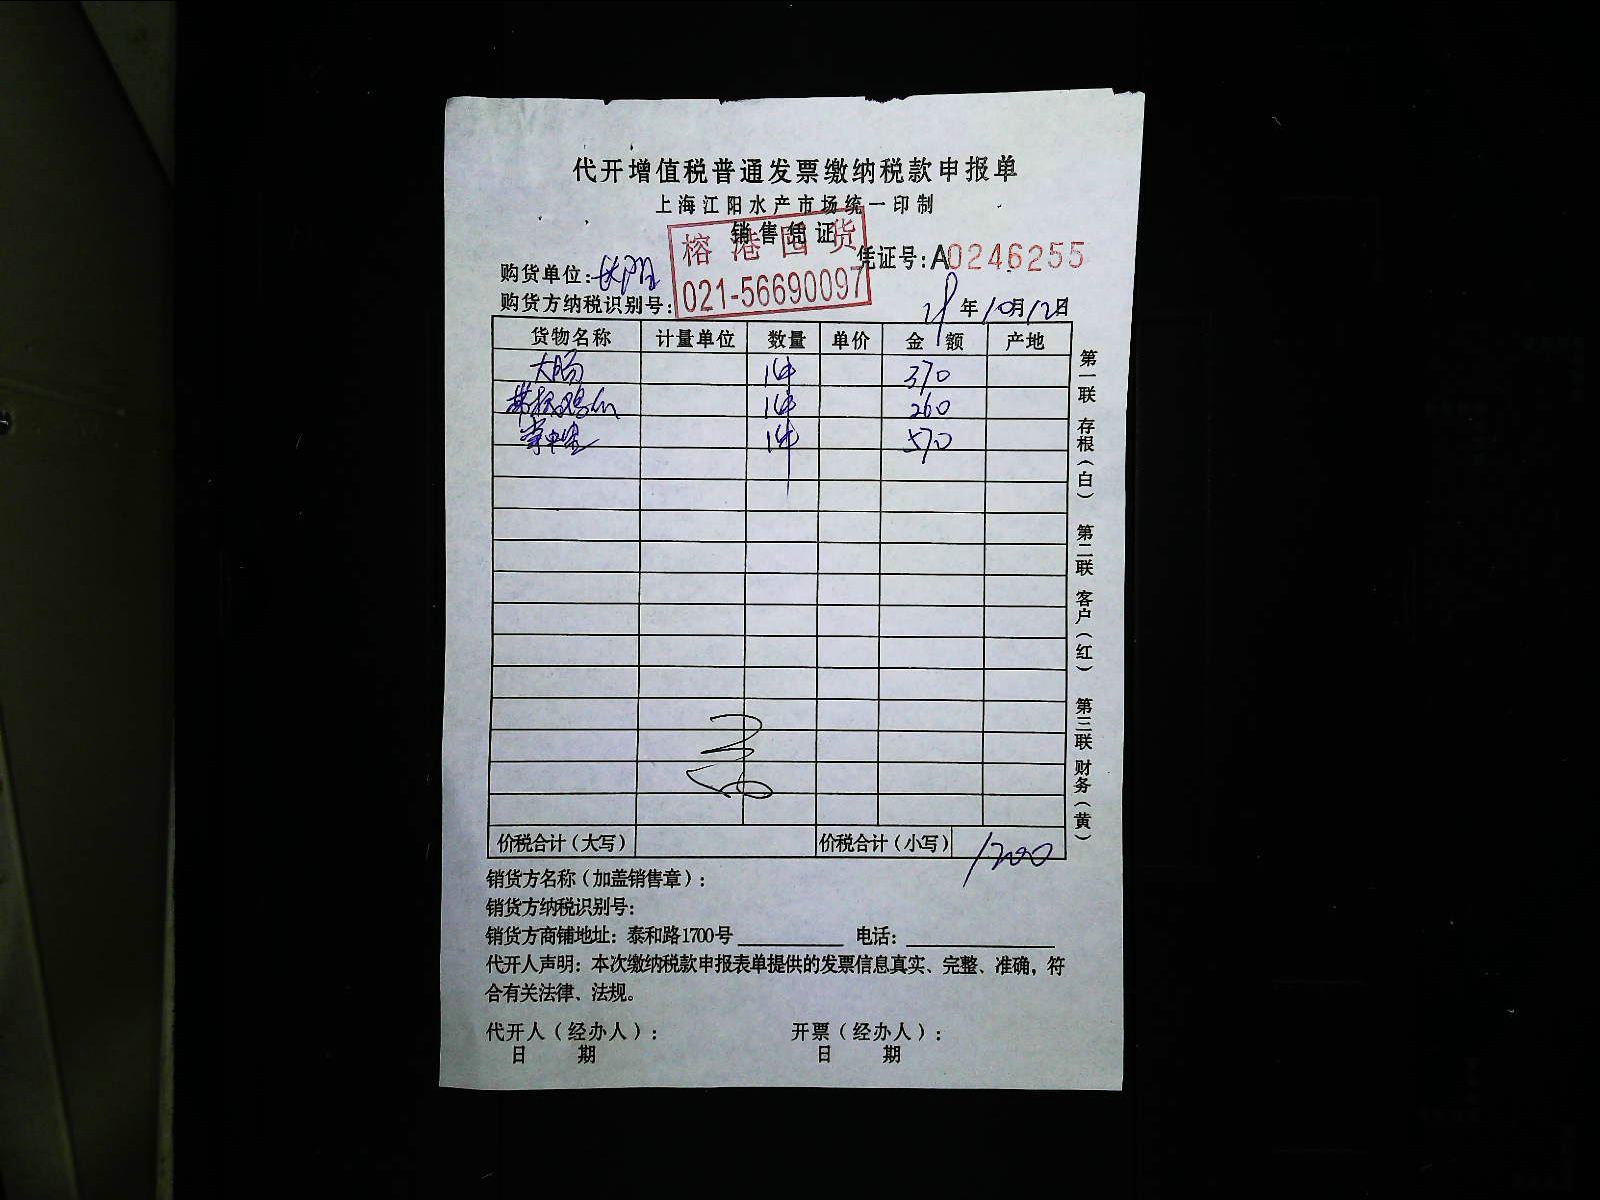 代开增值税普通发票缴纳税款申报单
上海江阳水产市场统一印制
销售凭证
榕港国货
021-56690097
凭证号:A0246255
购货单位:长阳
购货方纳税识别号:
年10月12日
货物名称 计量单位 数量 单价 金额 产地
大肠 1件 370
1件 260
掌中宝 1件 570
价税合计(大写) 价税合计(小写) 1200
销货方名称(加盖销售章):
销货方纳税识别号:
销货方商铺地址:泰和路1700号 电话:
代开人声明:本次缴纳税款申报表单提供的发票信息真实、完整、准确,符
合有关法律、法规。
代开人(经办人): 开票(经办人):
日期 日期
第一联 存根(白) 第二联 客户(红) 第三联 财务(黄)